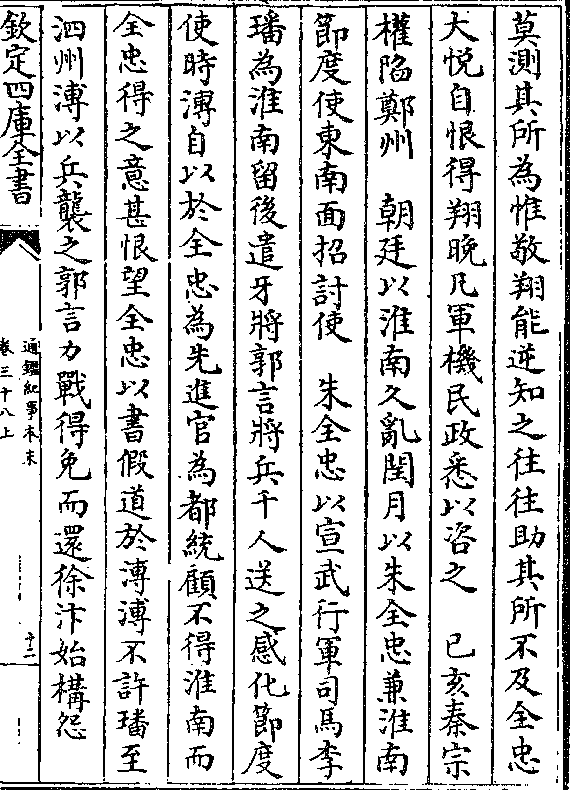 莫測其所為惟敬翔能逆知之往往助其所不及全忠
大悦自恨得翔晚凡軍機民政悉以咨之　已亥秦宗
權陷鄭州　朝廷以淮南久亂閏月以朱全忠兼淮南
節度使東南面招討使　朱全忠以宣武行軍司馬李
璠為淮南留後遣牙將郭言將兵千人送之感化節度
使時溥自以於全忠為先進官為都統顧不得淮南而
全忠得之意甚恨望全忠以書假道於溥溥不許璠至
泗州溥以兵襲之郭言力戰得免而還徐汴始構怨
欽定四庫全書
通鑑紀事本末
卷三十八上
十二